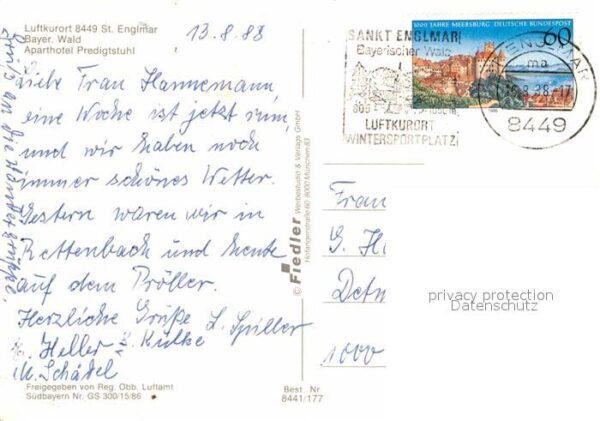 Luftkurort 8449 St. Englmar
Bayer. Wald
Aparthotel Predigtstuhl
13.8.88
Liebe Frau Hannemann,
eine Woche ist jetzt rum,
und wir haben noch
immer schönes Wetter.
Gestern waren wir in
Rettenbach und heute
auf dem Pröller.
Herzliche Grüße L. Spiller
Heller Kulke
M. Schädel
Gruß an die
Freigegeben von Reg. Obb. Luftamt
Südbayern Nr. GS 300/15/86
© Fiedler Werbestudio & Verlags GmbH
8000 München 83
Best. Nr.
8441/177
SANKT ENGLMAR
Bayerischer Wald
LUFTKURORT
WINTERSPORTPLATZ
1000 JAHRE MEERSBURG DEUTSCHE BUNDESPOST
60
ENGLMAR
ma
8449
Frau
G. H
Detm
1000
privacy protection
Datenschutz